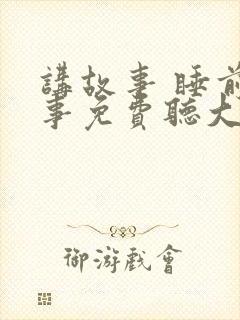 講故事 睡前
事免費聽大
御游戲會